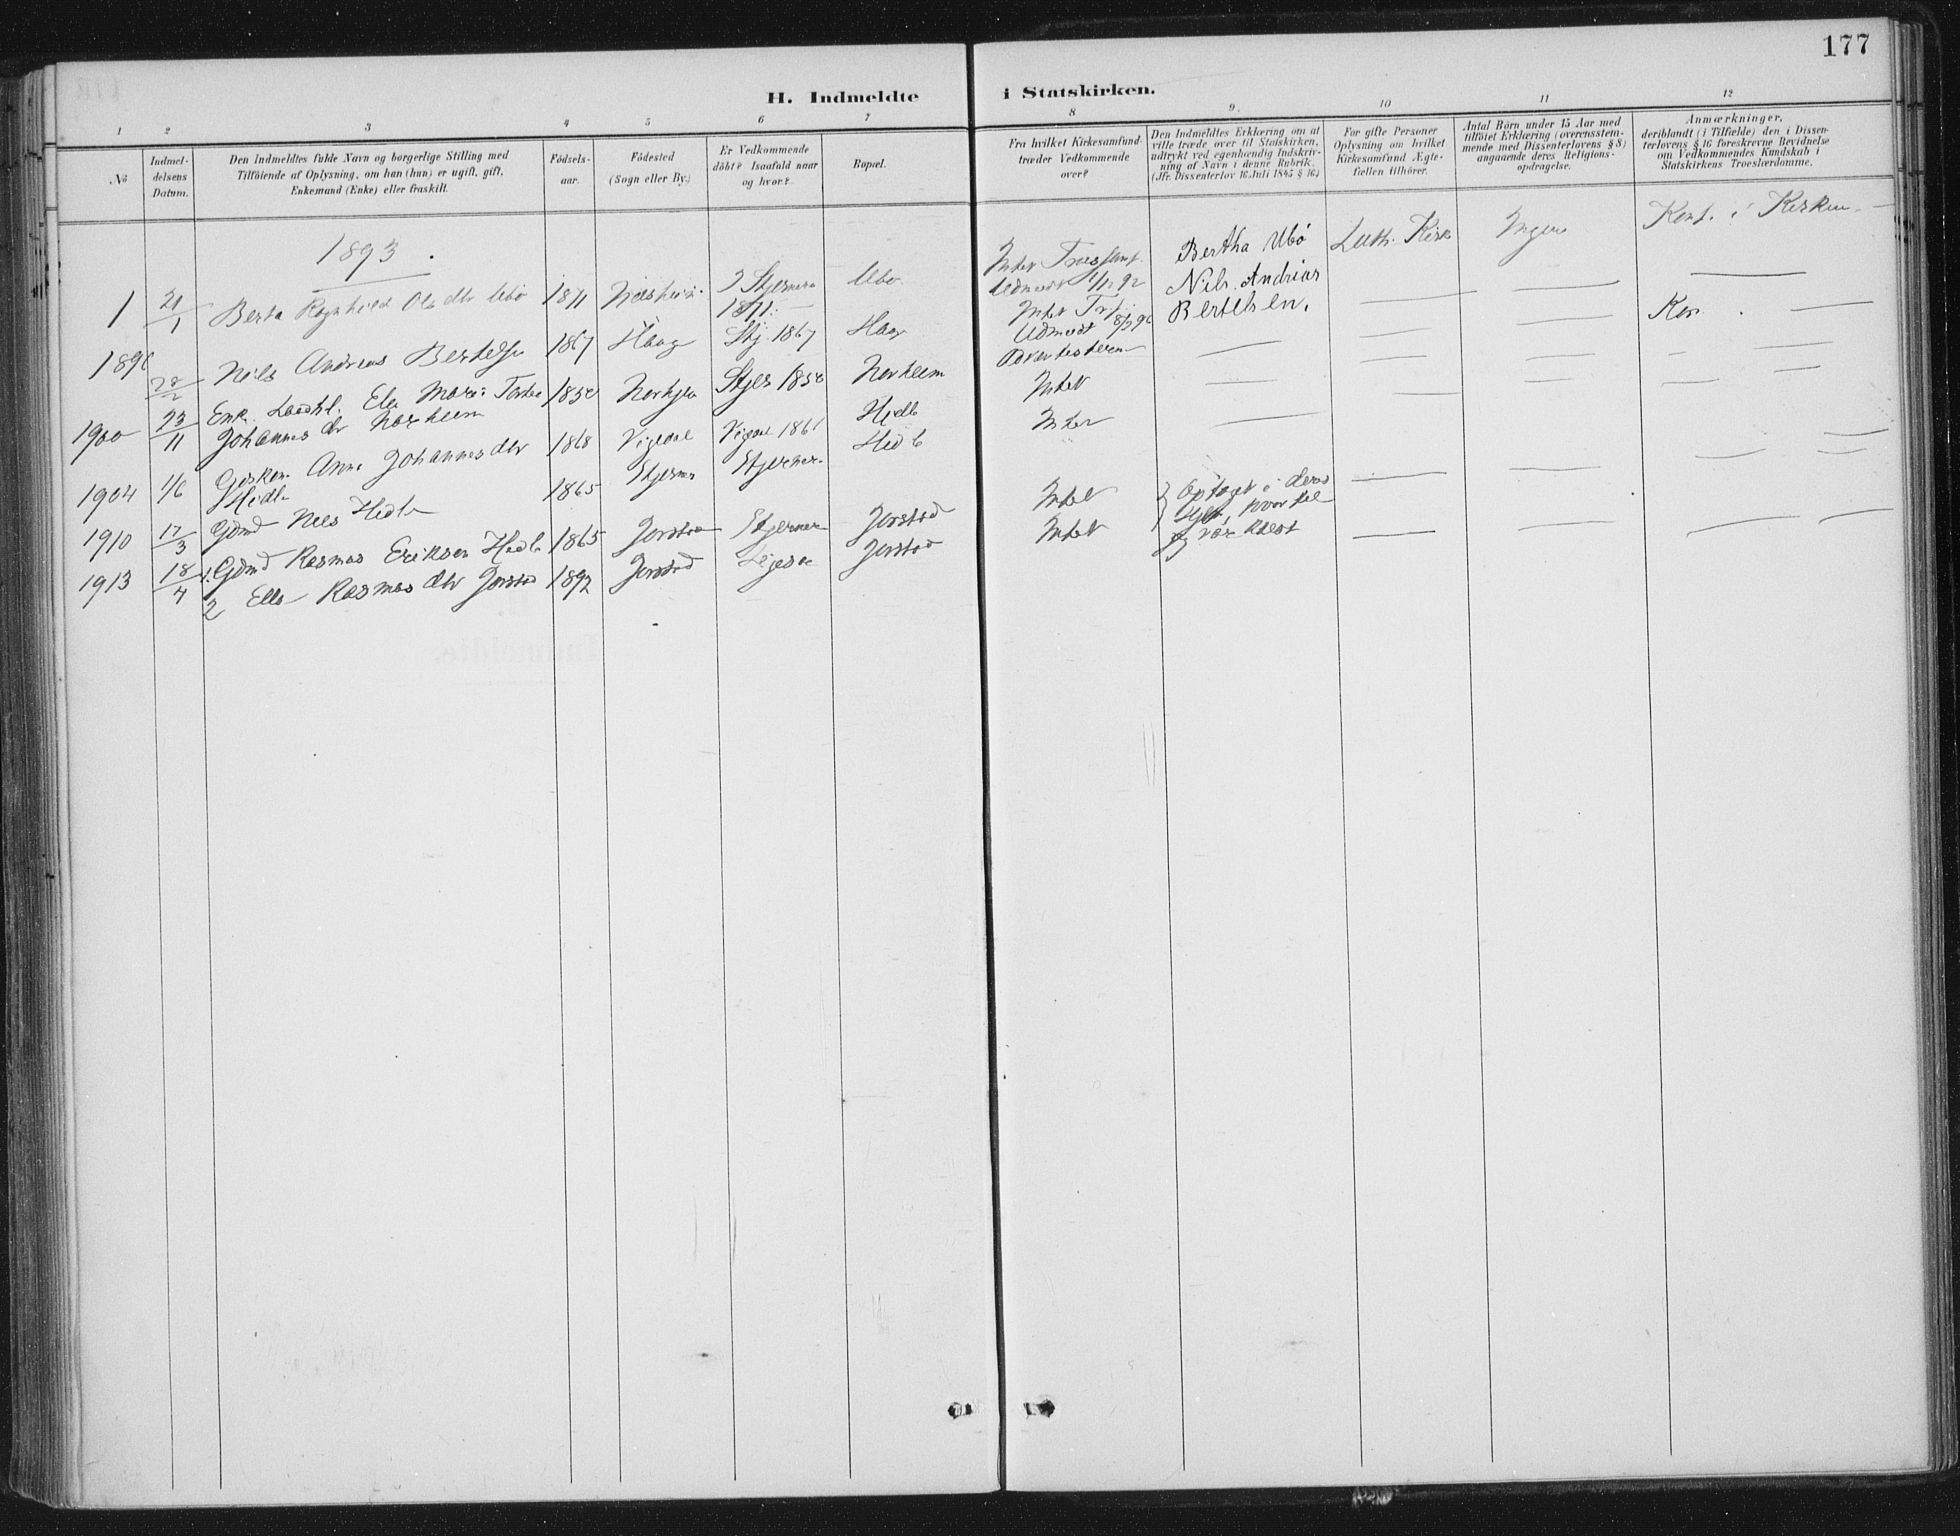 177
H. Indmeldte i Statskirken.
1 2 3 4 5 6 7 8 9. 10 11 12
No
Indmeldelsens Datum.
Den Indmeldtes fulde Navn og borgerlige Stilling med
Tilföiende af Oplysning, om han (hun) er ugift, gift,
Enkemand (Enke) eller fraskilt.
Födselsaar.
Födested
(Sogn eller By.)
Er Vedkommende
döbt? Isaafald naar
og hvor?
Bopæl.
Fra hvilket Kirkesamfund
træder Vedkommende
over?
Den Indmeldtes Erklæring om at
ville træde over til Statskirken,
udtrykt ved egenhændig Indskrivning af Navn i denne Rubrik.
(Jfr. Dissenterlov 16 Juli 1845 § 16)
For gifte Personer
Oplysning om hvilket
Kirkesamfund Ægtefællen tilhörer.
Antal Börn under 15 Aar med
tilföiet Erklæring (overensstemmende med Dissenterlovens § 8)
angaaende deres Religionsopdragelse.
Anmærkninger,
deriblandt (i Tilfælde) den i Dissenterlovens § 16 foreskrevne Bevidnelse
om Vedkommendes Kundskab i
Statskirkens Troeslærdomme.
1893.
1 21/1 Berta Ragnhild Ols dtr Ubö 1871 Stjernerö 1871 Ubö Intet Troessamf. Udmeldt 92 Bertha Ubö Luth. Kirk Ingen Konf. i Kirken
1896 28/2 Nils Andreas Bertelsen 1867 Haag Stj. 1867 Haag Intet Udmeldt Nils Andrias Bertelsen. Kon.
1900 23/11 Enk. Ela Johannes dtr Norheim 1850 Stjer 1850 Norheim Intet
1904 1/6 Anna Johannes dtr Hidle 1868 Vigedal Hidle Intet
1910 17/3 Gdmd Nels Hidle 1865 Stjerner Hidle
1913 18/4 1. Gdmd Rasmus Eriksen Hidle 1865 Jorstad Stjerner Jorstad Intet Optaget i deres
2 Ella Rasmus dtr Jorstad 1892 Jorstad Jorstad Intet